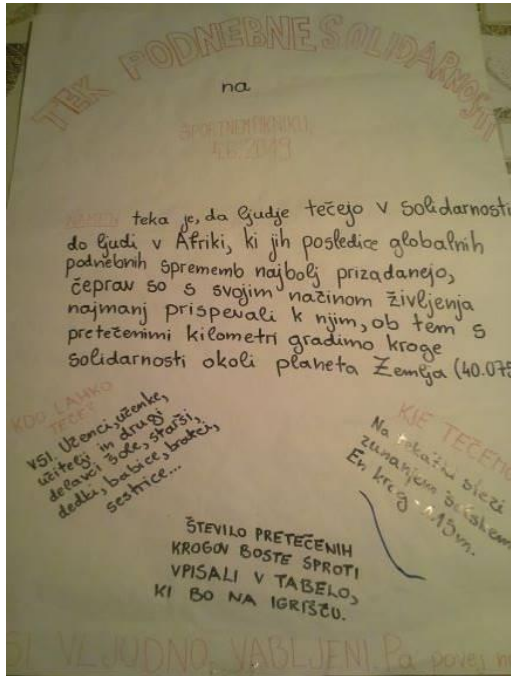 TEK PODNEBNE SOLIDARNOSTI
na
ŠPORTNEM PIKNIKU,
2019
teka je, da ljudje tečejo v solidarnosti
do ljudi v Afriki, ki jih posledice globalnih
podnebnih sprememb najbolj prizadanejo,
čeprav so s svojim načinom življenja
najmanj prispevali k njim, ob tem s
pretečenimi kilometri gradimo kroge
solidarnosti okoli planeta Zemlja (40.075
KDO LAHKO
TEČE?
VSI. Učenci, učenke,
učitelji in drugi
delavci šole, starši,
dedki, babice, bratci,
sestrice...
KJE TEČEMO
Na tekaški stezi
zunanjem šolskem
En krog
ŠTEVILO PRETEČENIH
KROGOV BOSTE SPROTI
VPISALI V TABELO,
KI BO NA IGRIŠČU.
VLJUDNO VABLJENI. Pa povej